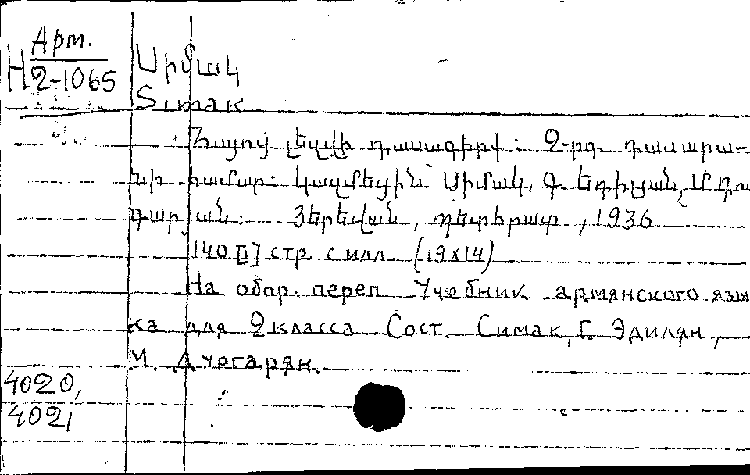 Арм.
Н 2-1065
Սիմակ
Simak
Հայոց լեզվի դասագիրք: 2-րդ դասարա-
նի համար: Կազմեցին՝ Սիմակ, Գ. Եդիլյան, Մ.
Յերեվան, պետհրատ, 1936
140 [1] стр. с илл. (19x14)
На обор. переп. Учебник армянского язы
ка для 2 класса Сост. Симак, Г. Эдилян,
М.
4020,
4021